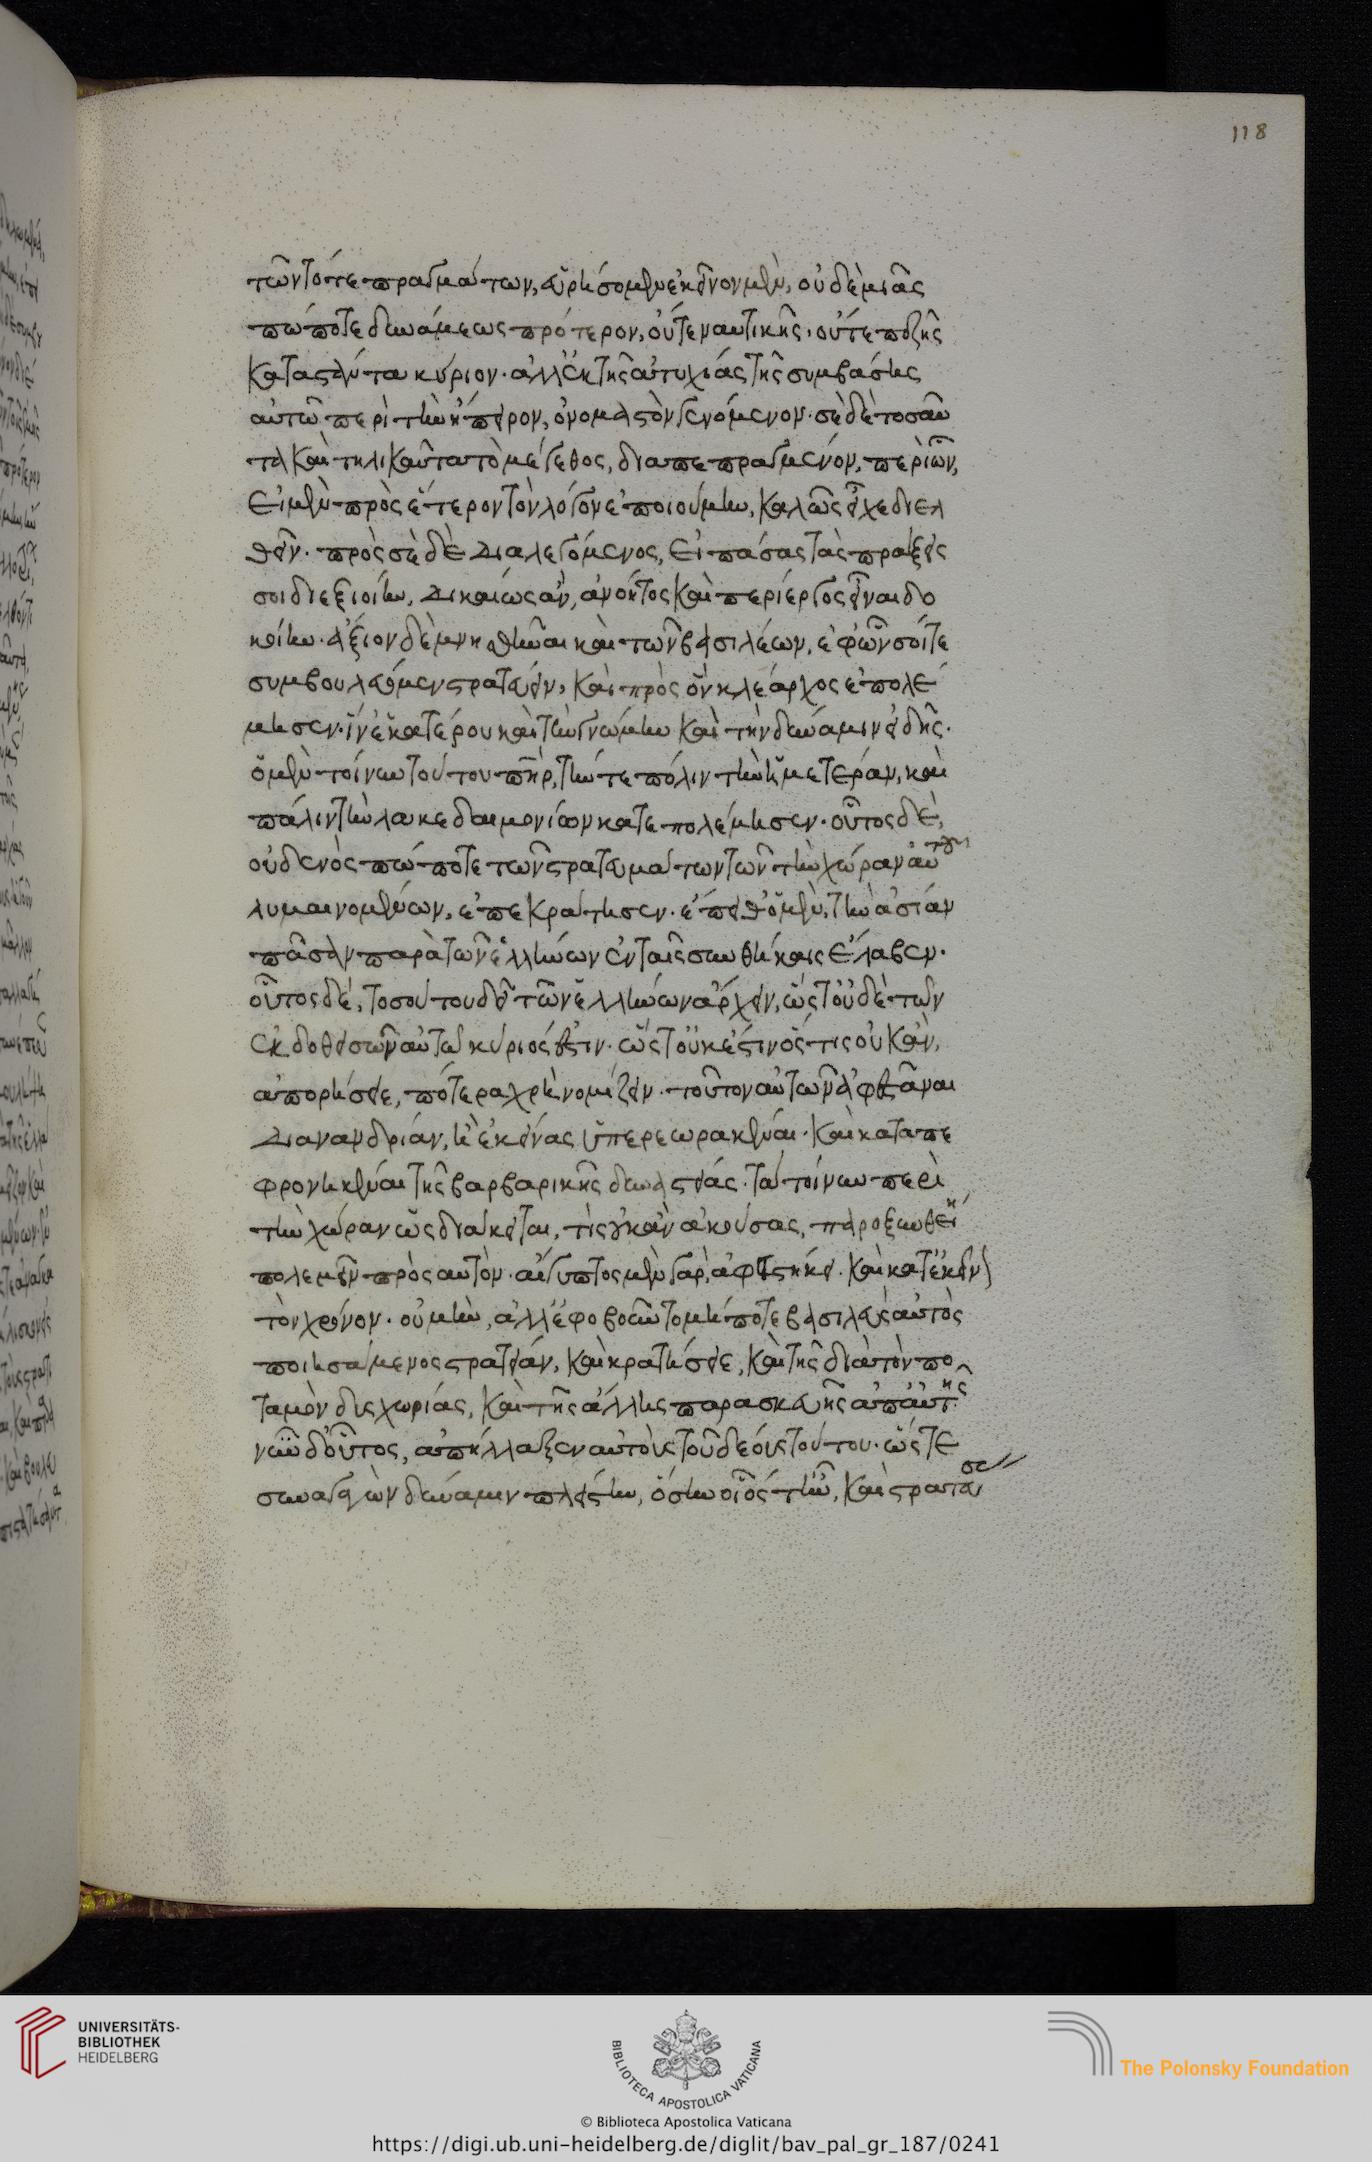 τῶν τότε πραγμάτων, εὑρήσομεν ἐκεῖνον μὲν, οὐδὲ μιᾶς
πώποτε δυνάμεως πρότερον, οὔτε ναυτικῆς. οὔτε πεζῆς
καταστάντα κύριον. ἀλλ' ἐκ τῆς ἀτυχίας τῆς συμβάσης
αὐτῶ περὶ τὴν ἤπειρον, ὀνομαστὸν γενόμενον. σὲ δὲ τοσαῦ
τα καὶ τηλικαῦτα τὸ μέγεθος, διαπεπραγμένον, περὶ ὧν,
εἰ μὲν πρὸς ἕτερον τὸν λόγον ἐποιούμην, καλῶς εἶχε διελ
θεῖν. πρὸς σὲ δὲ διαλεγόμενος, εἰ πάσας τὰς πράξεις
σοι διεξιοίην, δικαίως ἂν, ἀνόητος καὶ περίεργος εἶναι δο
κοίην. ἄξιον δὲ μνησθῆναι καὶ τῶν βασιλέων, ἐφ' ὧν σοί τε
συμβουλεύομεν στρατεύειν, καὶ πρὸς ὃν κλέαρχος ἐπολέ
μησεν. ἵν' ἑκατέρου καὶ τὴν γνώμην καὶ τὴν δύναμιν εἰδῆς.
ὁ μὲν τοίνυν τούτου πηρ, τήν τε πόλιν τὴν ἡμετέραν, καὶ
πάλιν τὴν λακεδαιμονίων κατεπολέμησεν. οὗτος δὲ,
οὐδενὸς πώποτε τῶν στρατευμάτων τῶν τὴν χώραν αὐτοῦ
λυμαινομένων, ἐπεκράτησεν. ἔπειθ' ὁ μὲν, τὴν ἀσίαν
πᾶσαν παρὰ τῶν ἑλλήνων ἐν ταῖς συνθήκαις ἔλαβεν.
οὗτος δὲ, τοσούτου δεῖ τῶν ἑλλήνων ἄρχειν, ὥστ' οὐδὲ τῶν
ἐκδοθεισῶν αὐτῶ κύριός ἐστιν. ὥστ' οὐκ ἔστιν ὅστις οὐκ ἂν,
ἀπορήσειε, πότερα χρὴ νομίζειν. τοῦτον αὐτῶν ἀφεστάναι
δι ἀνανδρίαν, ἢ ἐκείνας ὑπερεωρακέναι. καὶ καταπε
φρονηκέναι τῆς βαρβαρικῆς δυναστείας. τὰ τοίνυν περὶ
τὴν χώραν ὡς διάκειται, τίς οὐκ ἂν ἀκούσας, παροξυνθείη
πολεμεῖν πρὸς αὐτὸν. αἴγυπτος μὲν γὰρ, ἀφειστήκει. καὶ κατ' ἐκεῖνον
τὸν χρόνον. οὐ μὴν, ἀλλ' ἐφοβοῦντο μήποτε βασιλεὺς αὐτὸς
ποιησάμενος στρατείαν, καὶ κρατήσειε, καὶ τῆς διὰ τὸν πο
ταμὸν δυσχωρίας, καὶ τῆς ἄλλης παρασκευῆς ἀπ' αὐτῆς.
νῦν δ' οὗτος, ἀπήλλαξεν αὐτοὺς τοῦ δέους τούτου. ὥστε
συναγαγὼν δύναμιν πλείστην, ὅσην οἷός τ' ἦν, καὶ στρατεύσ
118
UNIVERSITÄTS-
BIBLIOTHEK
HEIDELBERG
BIBLIOTECA APOSTOLICA VATICANA
© Biblioteca Apostolica Vaticana
The Polonsky Foundation
https://digi.ub.uni-heidelberg.de/diglit/bav_pal_gr_187/0241